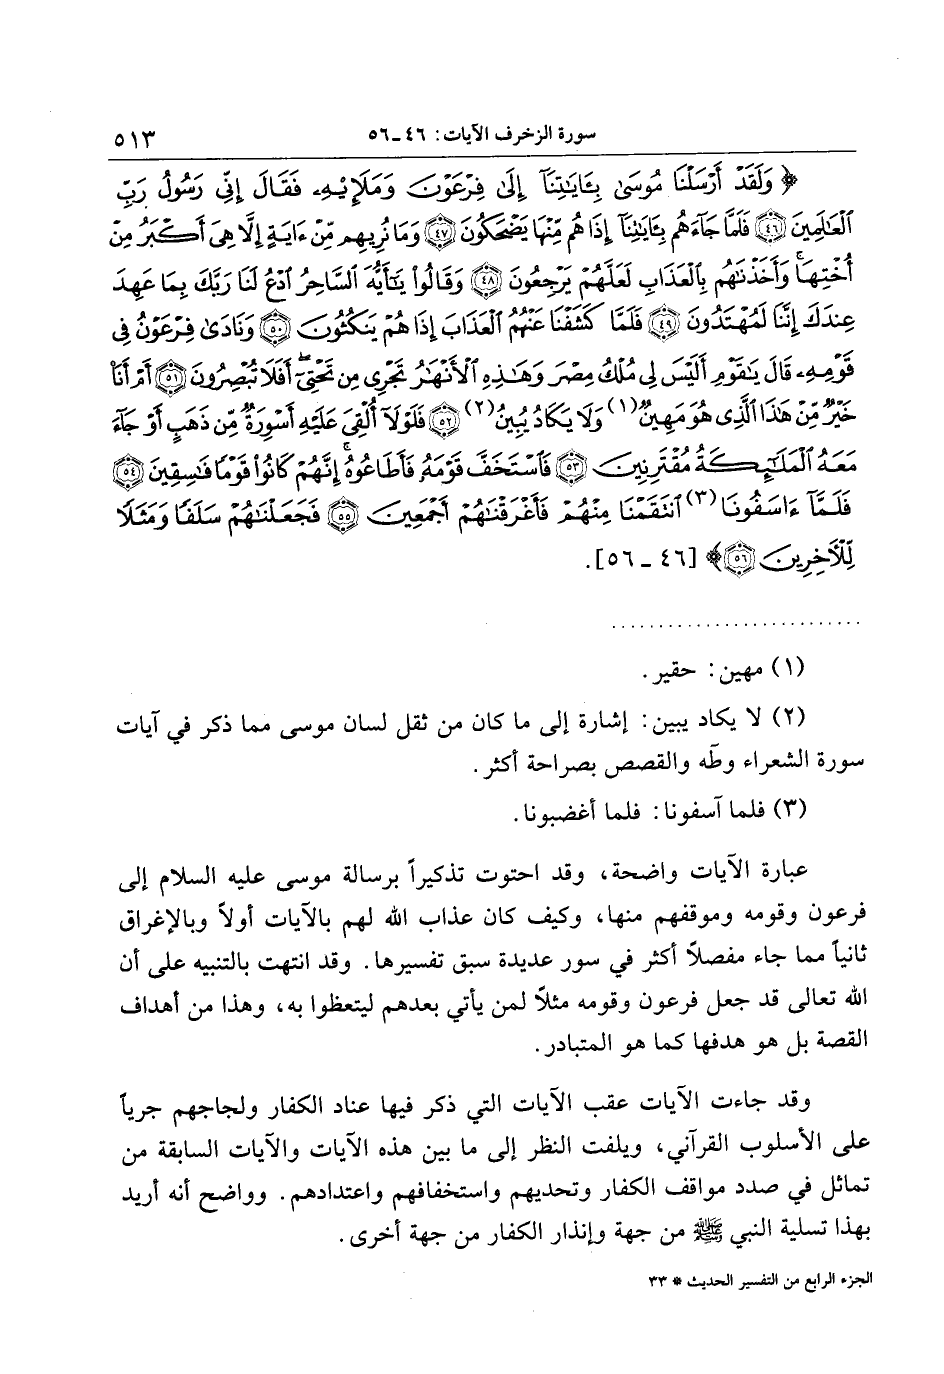 سورة الزخرف الآيات: ٤٦-٥٦ ٥١٣
﴿ وَلَقَدْ أَرْسَلْنَا مُوسَىٰ بِـَٔايَـٰتِنَآ إِلَىٰ فِرْعَوْنَ وَمَلَإِيْهِۦ فَقَالَ إِنِّى رَسُولُ رَبِّ
ٱلْعَـٰلَمِينَ ٤٦ فَلَمَّا جَآءَهُم بِـَٔايَـٰتِنَآ إِذَا هُم مِّنْهَا يَضْحَكُونَ ٤٧ وَمَا نُرِيهِم مِّنْ ءَايَةٍ إِلَّا هِىَ أَكْبَرُ مِنْ
أُخْتِهَا ۖ وَأَخَذْنَـٰهُم بِٱلْعَذَابِ لَعَلَّهُمْ يَرْجِعُونَ ٤٨ وَقَالُوا۟ يَـٰٓأَيُّهَ ٱلسَّاحِرُ ٱدْعُ لَنَا رَبَّكَ بِمَا عَهِدَ
عِندَكَ إِنَّنَا لَمُهْتَدُونَ ٤٩ فَلَمَّا كَشَفْنَا عَنْهُمُ ٱلْعَذَابَ إِذَا هُمْ يَنكُثُونَ ٥٠ وَنَادَىٰ فِرْعَوْنُ فِى
قَوْمِهِۦ قَالَ يَـٰقَوْمِ أَلَيْسَ لِى مُلْكُ مِصْرَ وَهَـٰذِهِ ٱلْأَنْهَـٰرُ تَجْرِى مِن تَحْتِىٓ ۖ أَفَلَا تُبْصِرُونَ ٥١ أَمْ أَنَا۠
خَيْرٌ مِّنْ هَـٰذَا ٱلَّذِى هُوَ مَهِينٌ (١) وَلَا يَكَادُ يُبِينُ (٢) ٥٢ فَلَوْلَآ أُلْقِىَ عَلَيْهِ أَسْوِرَةٌ مِّن ذَهَبٍ أَوْ جَآءَ
مَعَهُ ٱلْمَلَـٰٓئِكَةُ مُقْتَرِنِينَ ٥٣ فَٱسْتَخَفَّ قَوْمَهُۥ فَأَطَاعُوهُ ۚ إِنَّهُمْ كَانُوا۟ قَوْمًا فَـٰسِقِينَ ٥٤
فَلَمَّآ ءَاسَفُونَا (٣) ٱنتَقَمْنَا مِنْهُمْ فَأَغْرَقْنَـٰهُمْ أَجْمَعِينَ ٥٥ فَجَعَلْنَـٰهُمْ سَلَفًا وَمَثَلًا
لِّلْـَٔاخِرِينَ ٥٦ ﴾ [٤٦ - ٥٦].
(١) مهين: حقير.
(٢) لا يكاد يبين: إشارة إلى ما كان من ثقل لسان موسى مما ذكر في آيات
سورة الشعراء وطه والقصص بصراحة أكثر.
(٣) فلما آسفونا: فلما أغضبونا.
عبارة الآيات واضحة، وقد احتوت تذكيراً برسالة موسى عليه السلام إلى
فرعون وقومه وموقفهم منها، وكيف كان عذاب الله لهم بالآيات أولاً وبالإغراق
ثانياً مما جاء مفصلاً أكثر في سور عديدة سبق تفسيرها. وقد انتهت بالتنبيه على أن
الله تعالى قد جعل فرعون وقومه مثلاً لمن يأتي بعدهم ليتعظوا به، وهذا من أهداف
القصة بل هو هدفها كما هو المتبادر.
وقد جاءت الآيات عقب الآيات التي ذكر فيها عناد الكفار ولجاجهم جرياً
على الأسلوب القرآني، ويلفت النظر إلى ما بين هذه الآيات والآيات السابقة من
تماثل في صدد مواقف الكفار وتحديهم واستخفافهم واعتدادهم. وواضح أنه أريد
بهذا تسلية النبي ﷺ من جهة وإنذار الكفار من جهة أخرى.
الجزء الرابع من التفسير الحديث * ٣٣